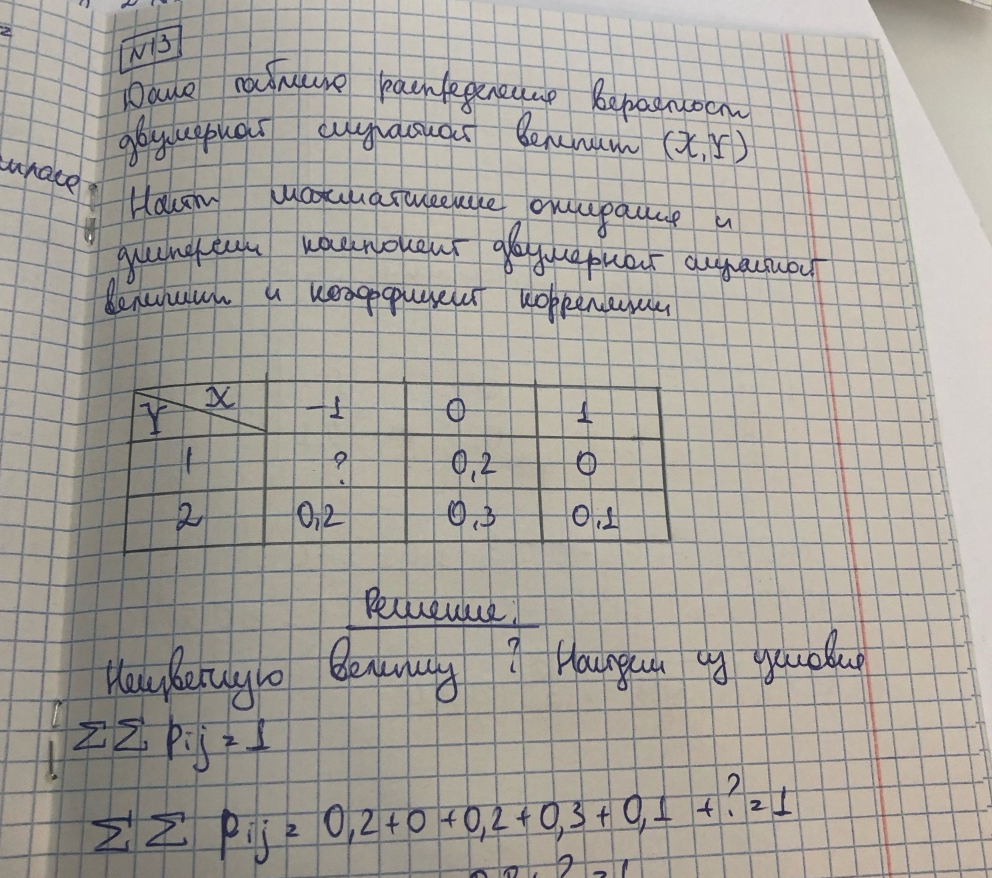 N13
Дана таблица распределения вероятности
двумерной случайной величины (X,Y)
Найти математические ожидания и
дисперсии компонент двумерной случайной
величины и коэффициент корреляции
Y X -1 0 1
1 ? 0,2 0
2 0,2 0,3 0,1
Решение.
Неизвестную величину ? Найдем из условия
ΣΣ pij = 1
ΣΣ pij = 0,2+0+0,2+0,3+0,1 +?=1